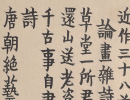 近作三十八
論畫雜詩
草堂一所君
還山送老姿
千古事自
詩
唐朝絶藝